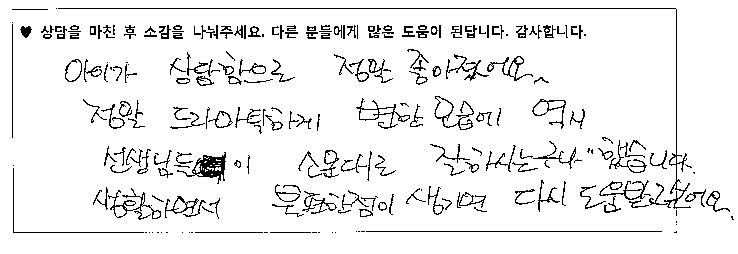 ♥ 상담을 마친 후 소감을 나눠주세요. 다른 분들에게 많은 도움이 된답니다. 감사합니다.
아이가 상담함으로 정말 좋아졌어요~
정말 드라마틱하게 변한 모습에 역시
선생님들이 소문대로 잘하시는구나" 했습니다.
생활하면서 불편한점이 생기면 다시 도움받고싶어요.